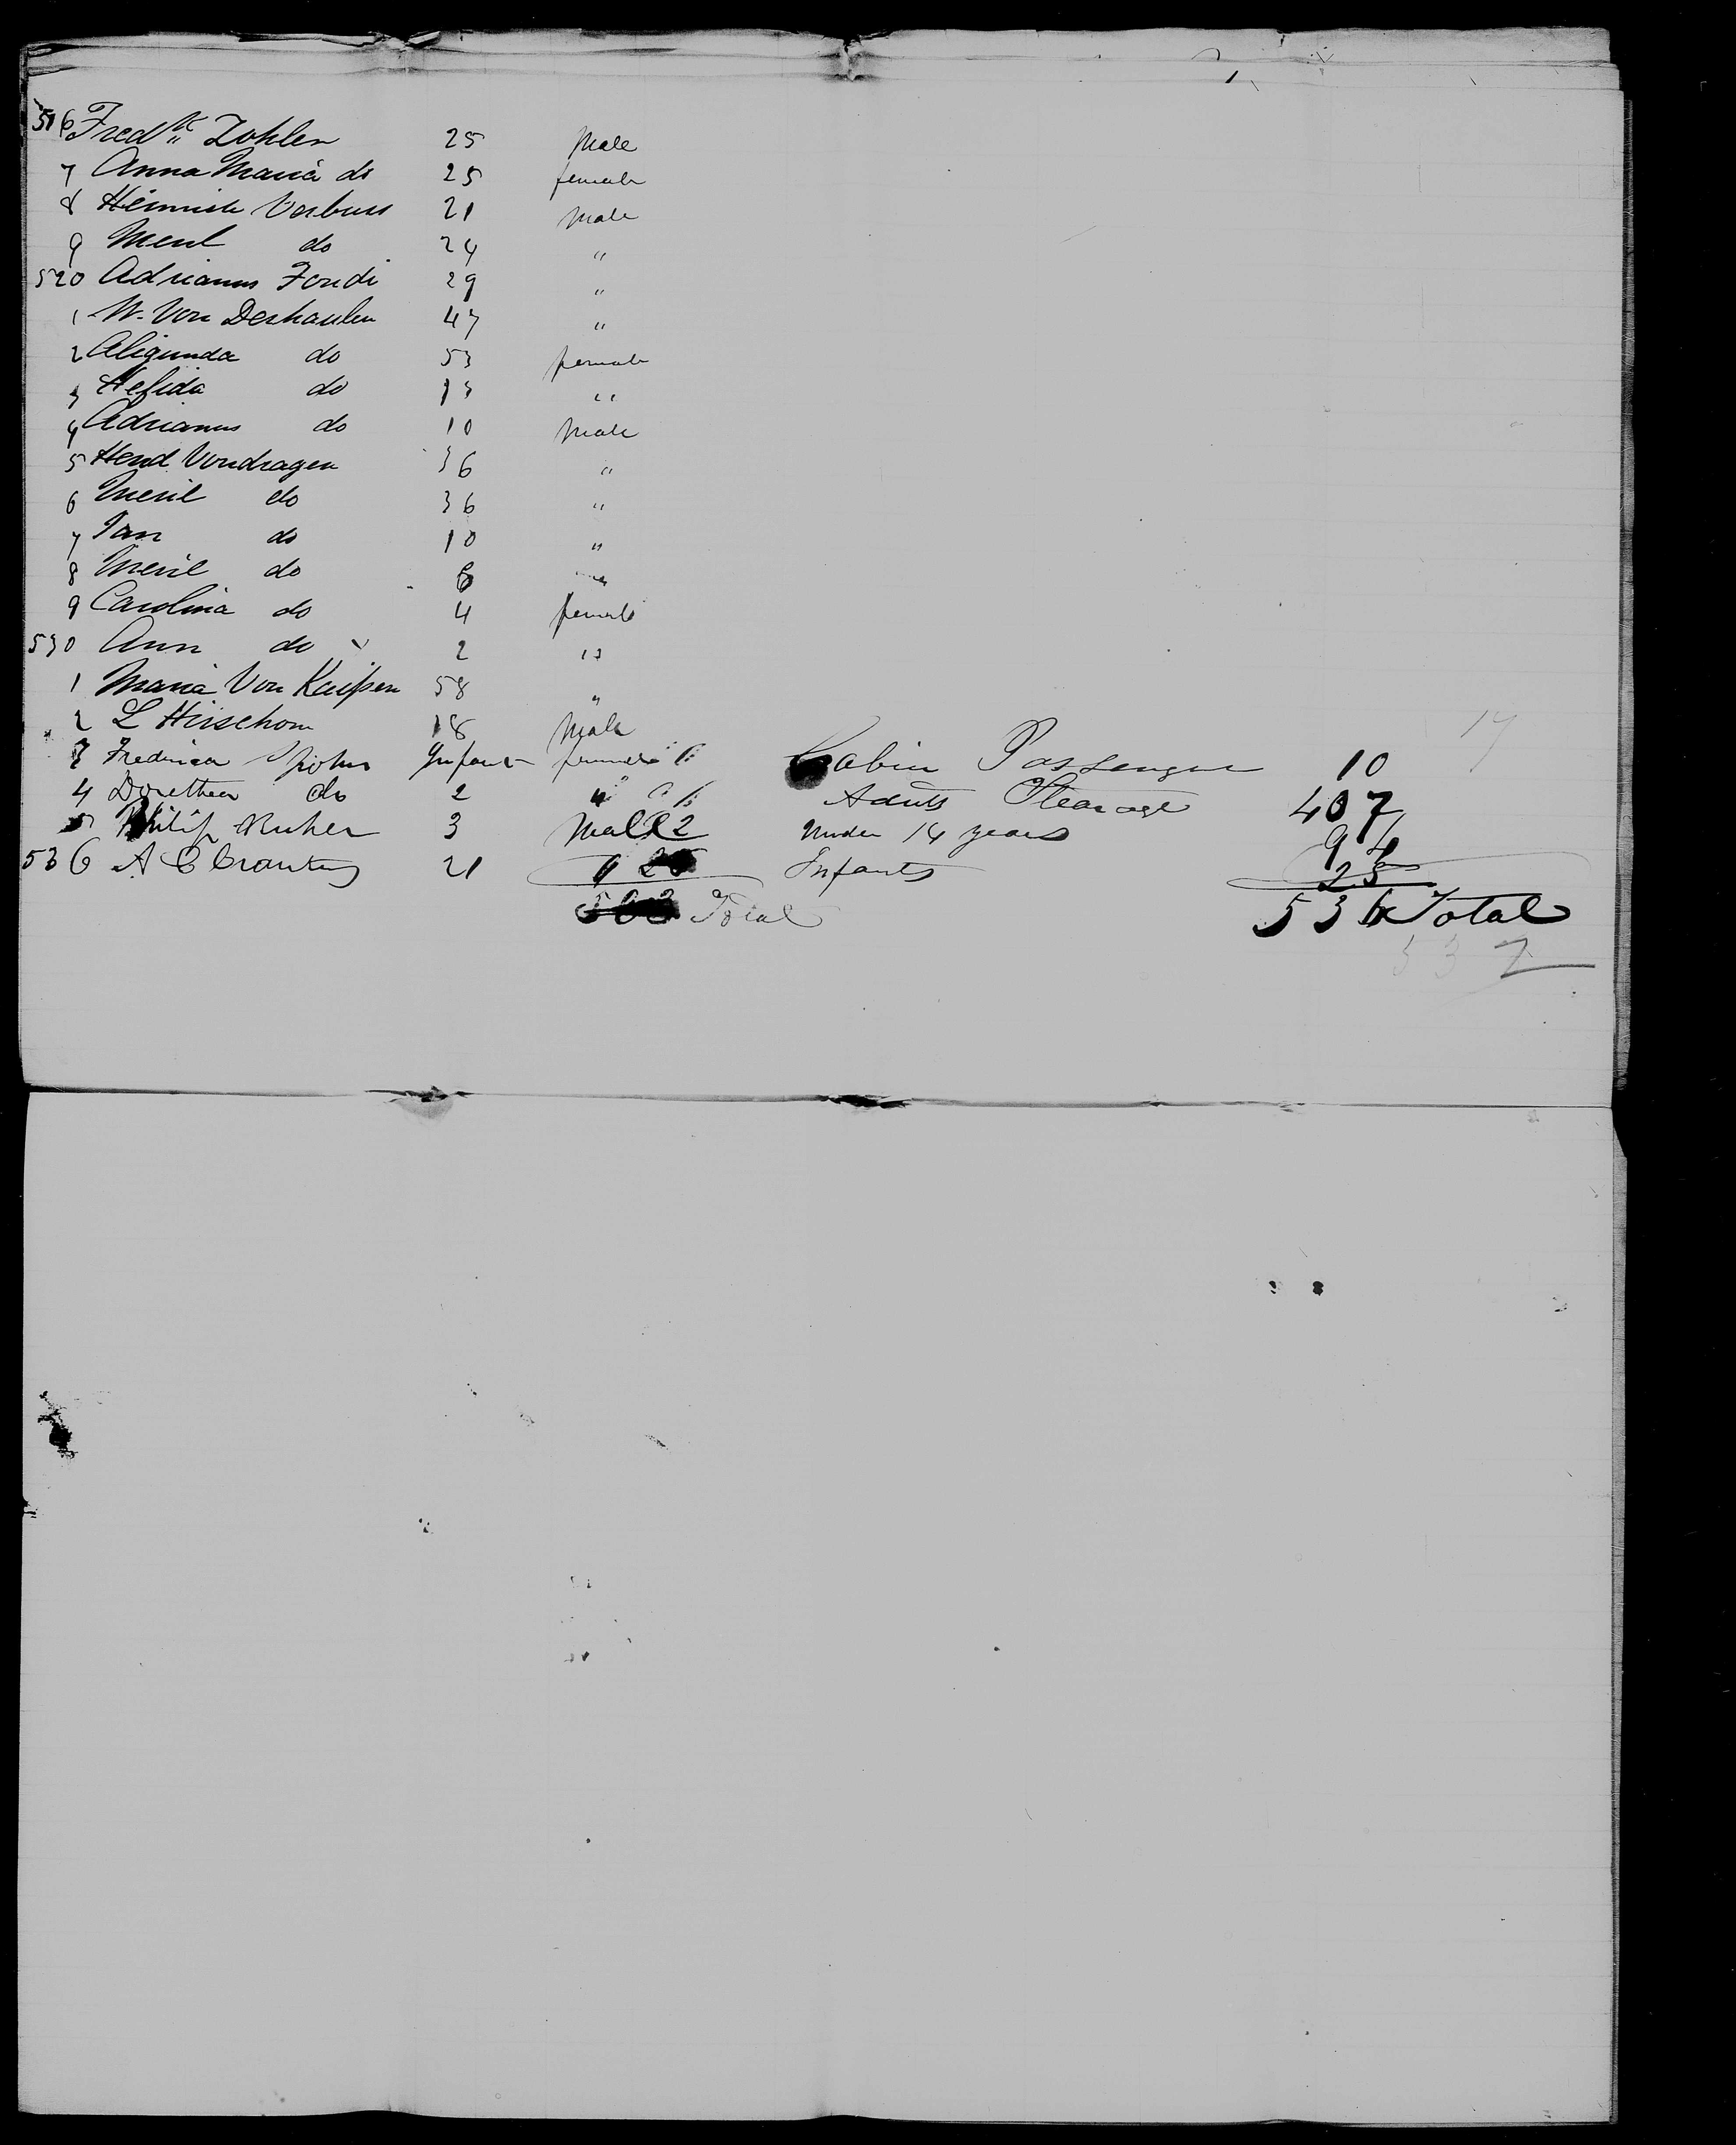 516 Fredk Zohlen 25 Male
7 Anna Maria do 25 female
8 Heinrich Verbuss 21 Male
9 Meul do 24 "
520 Adrianus Fondi 29 "
1 W. Von Derhaulen 47 "
2 Aligunda do 53 female
3 Hefida do 13 "
4 Adrianus do 10 Male
5 Hend Vondragen 36 "
6 Meril do 36 "
7 Jan do 10 "
8 Meril do 6 "
9 Carolina do 4 female
530 Ann do 2 "
1 Maria Von Kaipen 58 "
2 L Hirschom 18 Male
3 Frederica Spohn Infant female Cabin Passenger 10
4 Dorethea do 2 " Adults Stearage 407
5 Philip Ruher 3 Male 2 Under 14 years 94
536 A C Crantz 21 " Infants 25
Total 536 Total
537